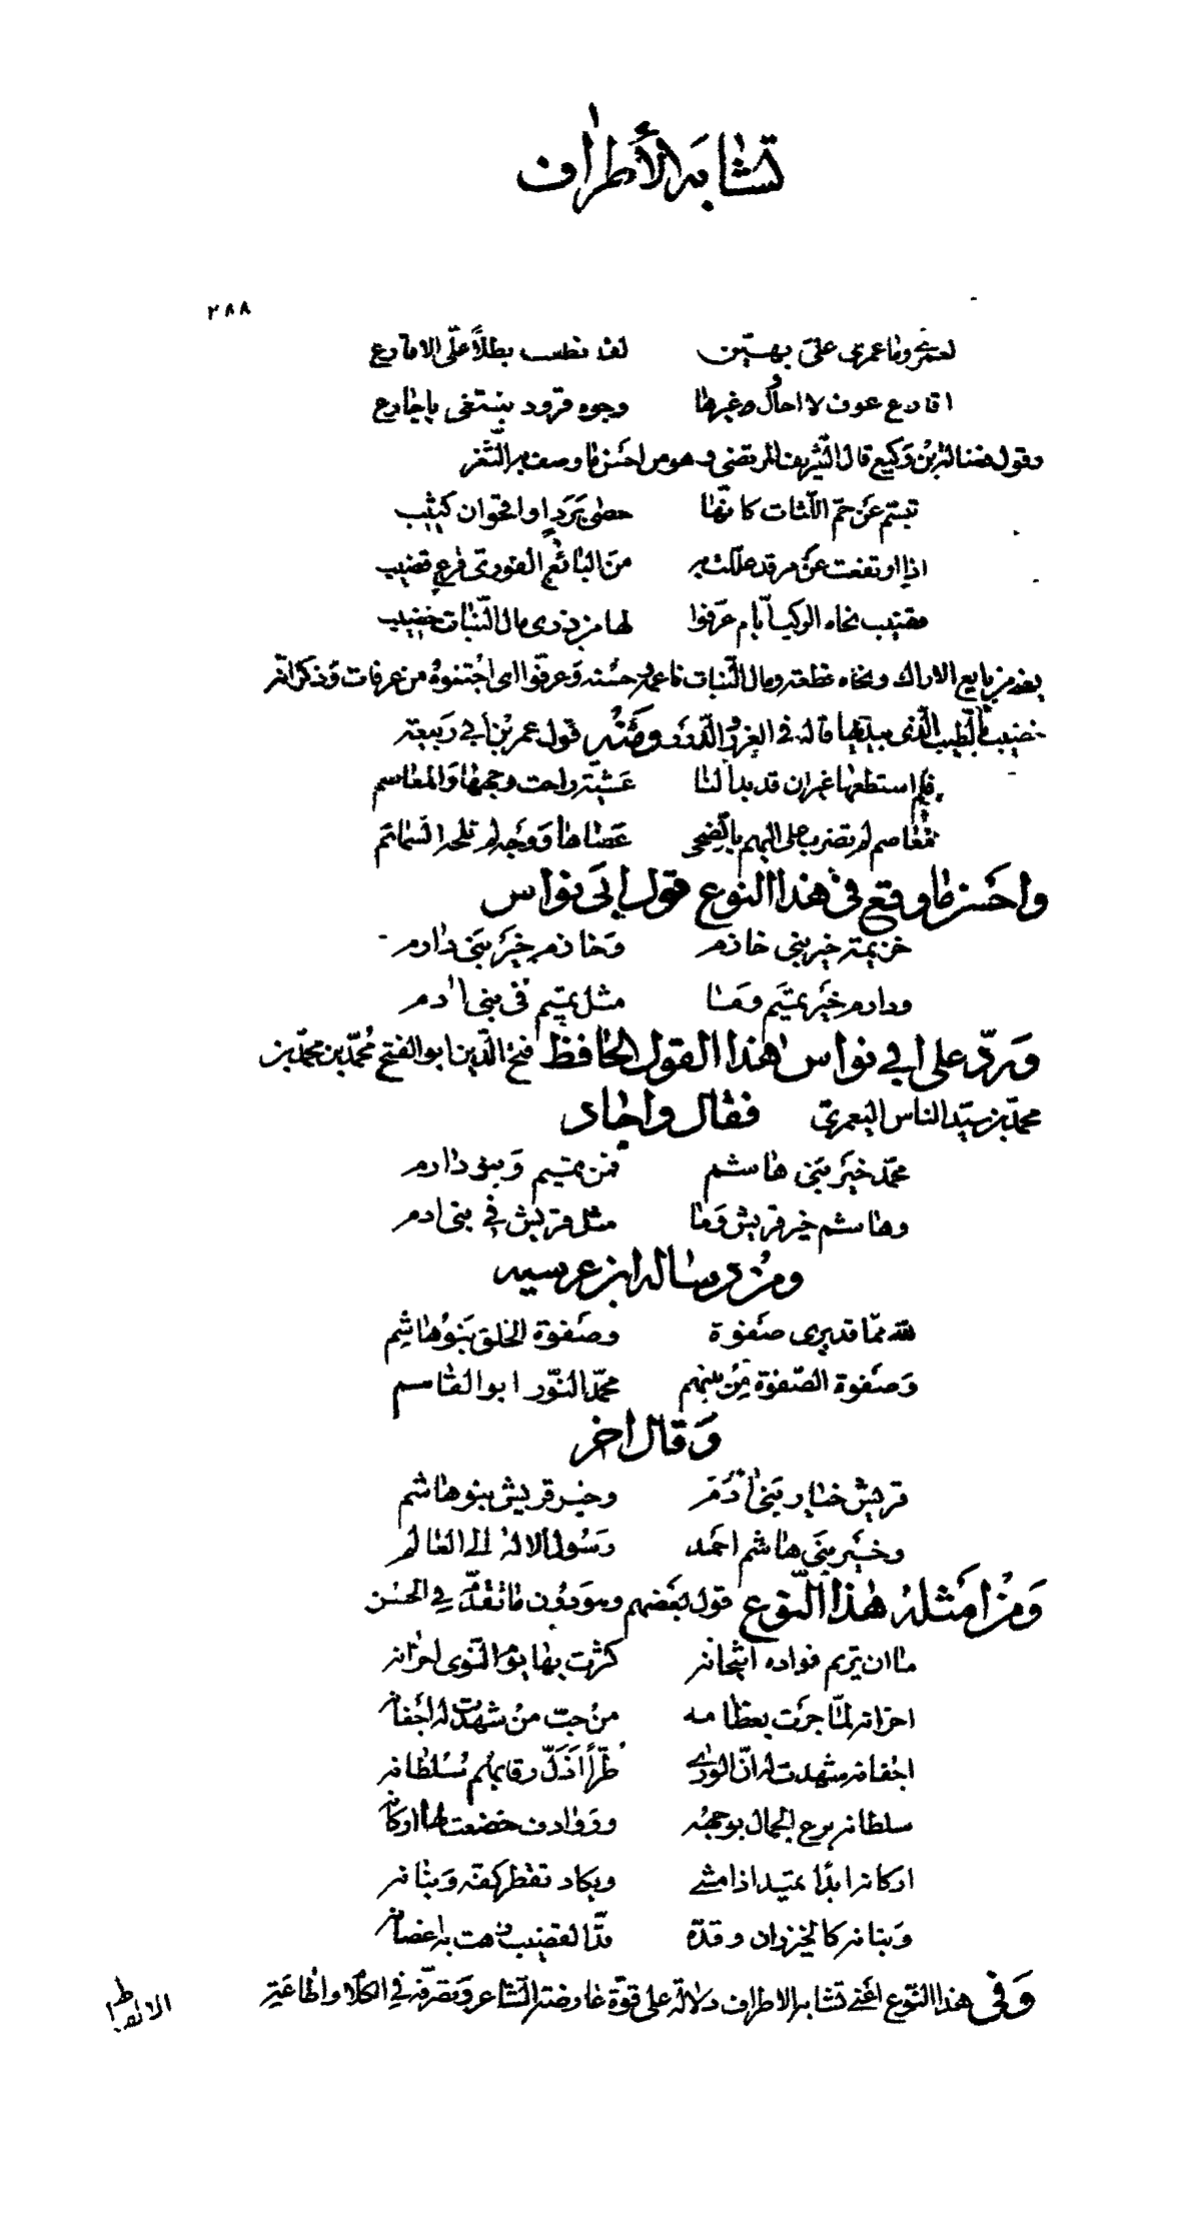 تشابه الأطراف
٢٨٨
لعمري وما عمري علي بهين لقد نطقت بطلا علي الاقارع
اقارع عوف لا احاول غيرها وجوه قرود يبتغي من يجادع
وقول قال الشريف المرتضي وهو من احسن ما وصف به الثغر
تبسم عن حم اللثات كانها حصي برد او اقحوان كثيب
اذا ارتفعت عن مرقد عللت به من اليانع الغوري فرع قضيب
قضيب نحاه الركب ايام عرفوا لها من ذري مال النبات خضيب
يعني من يانع الاراك ونحاه قطعه ومال النبات ناعمه حسنه وعرفوا اي اجتنوه من عرفات وذكر انه
خضيب الطيب الذي بيديها قاله في الغرر والدرر ومنه قول عمر بن أبي ربيعة
فلم استطعها غير ان قد بدا لنا عشية راحت وجهها والمعاصم
معاصم لم تضرب علي البهم بالضحي عصاها ووجه لم تلحه السمائم
واحسن ما وقع في هذا النوع قول ابي نواس
خزيمة خير بني خازم وخازم خير بني دارم
ودارم خير تميم وما مثل تميم في بني ادم
ورد علي ابي نواس هذا القول الحافظ فتح الدين ابو الفتح محمد بن محمد بن
محمد بن سيد الناس اليعمري فقال واجاد
محمد خير بني هاشم فمن تميم وبنو دارم
وهاشم خير قريش وما مثل قريش في بني ادم
ومن رسالة ابن غرسيه
لله مما قد يري صفوة وصفوة الخلق بنو هاشم
وصفوة الصفوة من بينهم محمد النور ابو القاسم
وقال اخر
قريش خيار بني ادم وخير قريش بنو هاشم
وخير بني هاشم احمد رسول الاله الي العالم
ومن امثلة هذا النوع قول بعضهم وهو دون ما تقدم في الحسن
ما ان يريم فواده اشجانه كثرت بها يوم النوي احزانه
احزانه لما جرت بعظامه من حب من شهدت له اجفانه
اجفانه شهدت له ان الوري طرا اذل رقابهم سلطانه
سلطانه بدع الجمال بوجهه وروادف خضعت لها اركانه
اركانه ابدا تميد اذا مشي ويكاد تقطر كفه وبنانه
وبنانه كالخيزران وقده قد القضيب زهت به اغصانه
وفي هذا النوع اعني تشابه الاطراف دلالة علي قوة عارضة الشاعر وتصرفه في الكلام واطاعة
الالفاظ